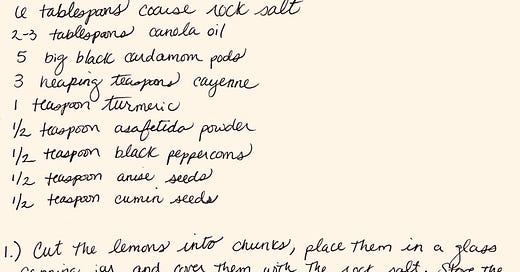 6 tablespoons coarse rock salt
2-3 tablespoons canola oil
5 big black cardamom pods
3 heaping teaspoons cayenne
1 teaspoon turmeric
1/2 teaspoon asafetida powder
1/2 teaspoon black peppercorns
1/2 teaspoon anise seeds
1/2 teaspoon cumin seeds
1.) Cut the lemons into chunks, place them in a glass
canning jar and cover them with the rock salt. Store the